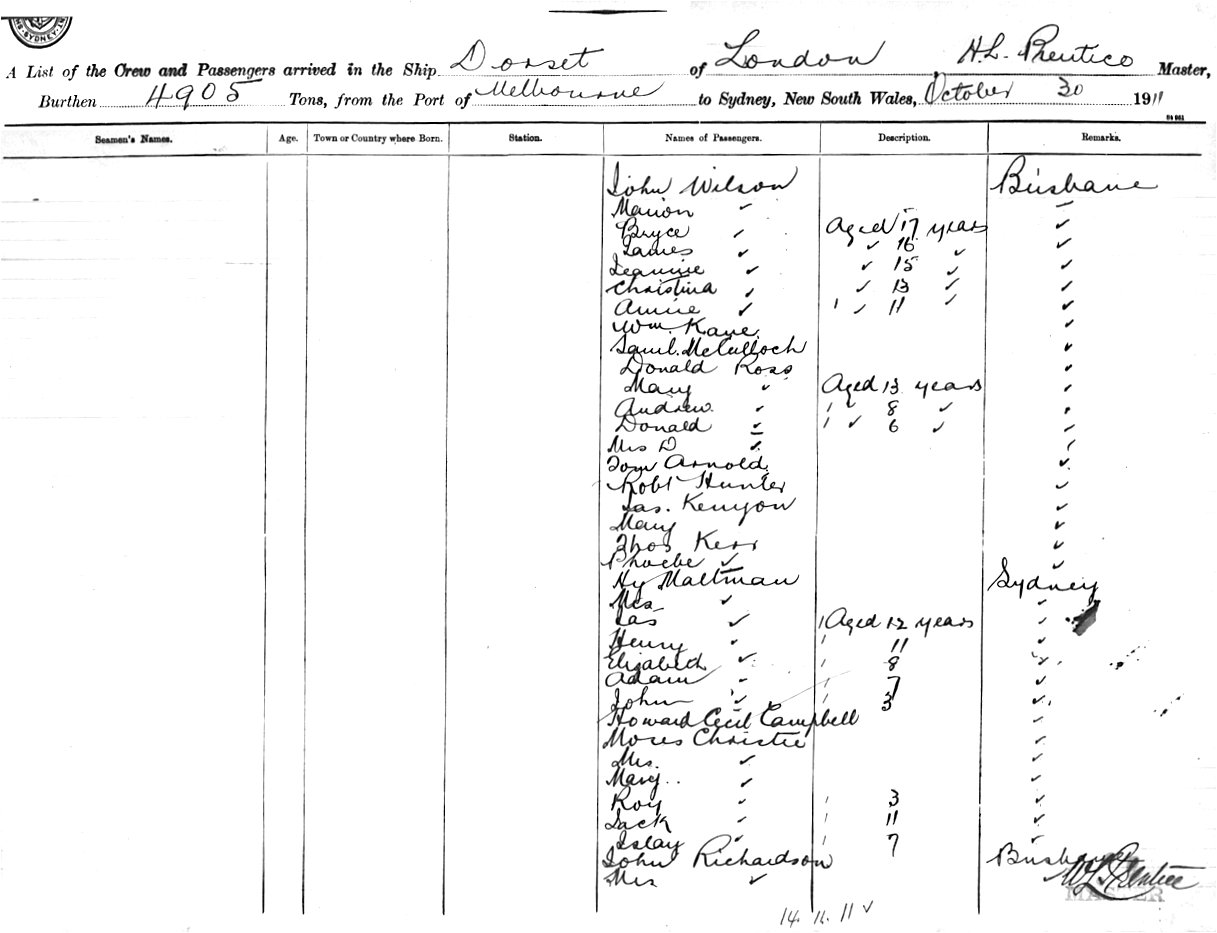 A List of the Crew and Passengers arrived in the Ship Dorset of London H.L. Prentice Master,
Burthen 4905 Tons, from the Port of Melbourne to Sydney, New South Wales, October 30 1911
Seamen's Names. Age. Town or Country where Born. Station. Names of Passengers. Description. Remarks.
John Wilson Brisbane
Marion ✓ ✓
Bryce ✓ Aged 17 years ✓
James ✓ ✓ 16 ✓ ✓
Jeannie ✓ ✓ 15 ✓ ✓
Christina ✓ ✓ 13 ✓ ✓
Annie ✓ 1 ✓ 11 ✓ ✓
Wm. Kane ✓
Saml. McCulloch ✓
Donald Ross ✓
Mary ✓ Aged 13 years ✓
Andrew ✓ 1 ✓ 8 ✓ ✓
Donald ✓ 1 ✓ 6 ✓ ✓
Mrs D ✓ ✓
Tom Arnold ✓
Robt Hunter ✓
Jas. Kenyon ✓
Mary ✓
Thos Kerr ✓
Phoebe ✓ ✓
Hy Maltman Sydney
Mrs ✓ ✓
Jas ✓ 1 Aged 12 years ✓
Henry ✓ 1 11 ✓
Elizabeth ✓ 1 8 ✓
Adam ✓ 1 7 ✓
John ✓ 1 3 ✓
Howard Cecil Campbell ✓
Moses Christie ✓
Mrs. ✓ ✓
Mary.. ✓ ✓
Roy ✓ 1 3 ✓
Jack ✓ 1 11 ✓
Islay ✓ 1 7 ✓
John Richardson Brisbane
Mrs ✓ H L Prentice
MASTER
14.11.11 ✓